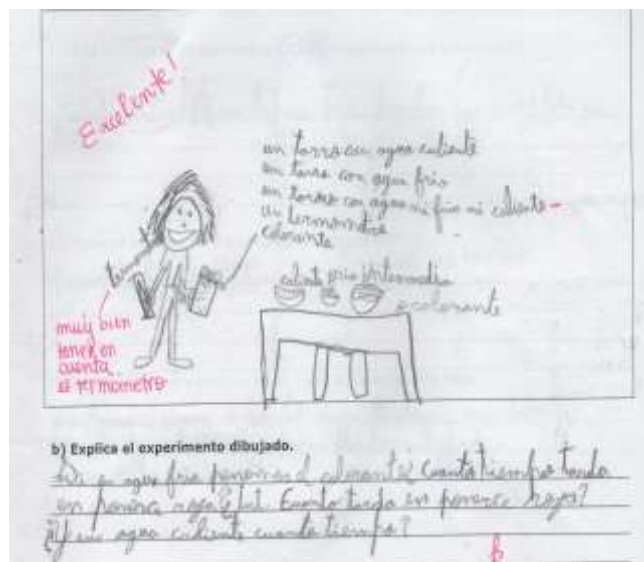 Excelente!
un tarro con agua caliente
un tarro con agua fria
un tarro con agua ni fria ni caliente
un termometro
colorante
caliente fria intermedia
colorante
muy bien
tener en
cuenta
el termometro
b) Explica el experimento dibujado.
en agua fria el colorante Cuanto tiempo tarda
en ponerce roja? Cuanto tarda en ponerce roja?
agua caliente cuanto tiempo?